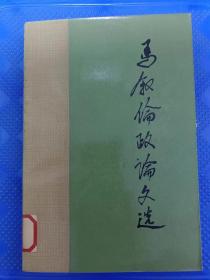 马叙伦政论文选